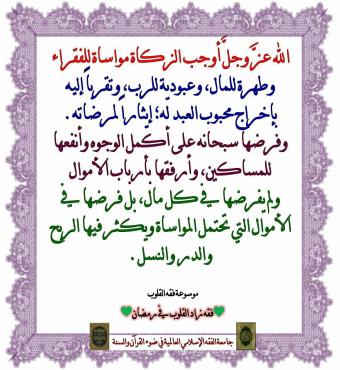 الله عزَّ وجلَّ أوجب الزكاة مواساة للفقراء
وطهرة للمال، وعبودية للرب، وتقرباً إليه
بإخراج محبوب العبد له؛ إيثاراً لمرضاته.
وفرضها سبحانه على أكمل الوجوه وأنفعها
للمساكين، وأرفقها بأرباب الأموال
ولم يفرضها في كل مال، بل فرضها في
الأموال التي تحتمل المواساة ويكثر فيها الربح
والدر والنسل.
موسوعة فقه القلوب
فقه زاد القلوب في رمضان
جامعة الفقه الإسلامي العالمية في ضوء القرآن والسنة